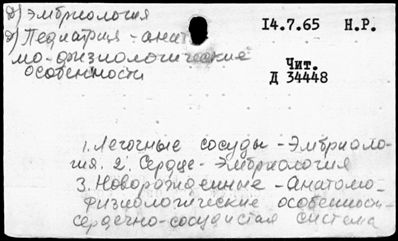 д) Эмбриология
д) Педиатрия - анато
мо-физиологические
особенности
14.7.65 Н.Р.
Чит.
Д 34448
1. Легочные сосуды - Эмбриоло-
гия. 2. Сердце - Эмбриология
3. Новорожденные - Анатомо-
физиологические особенности-
сердечно-сосудистая система